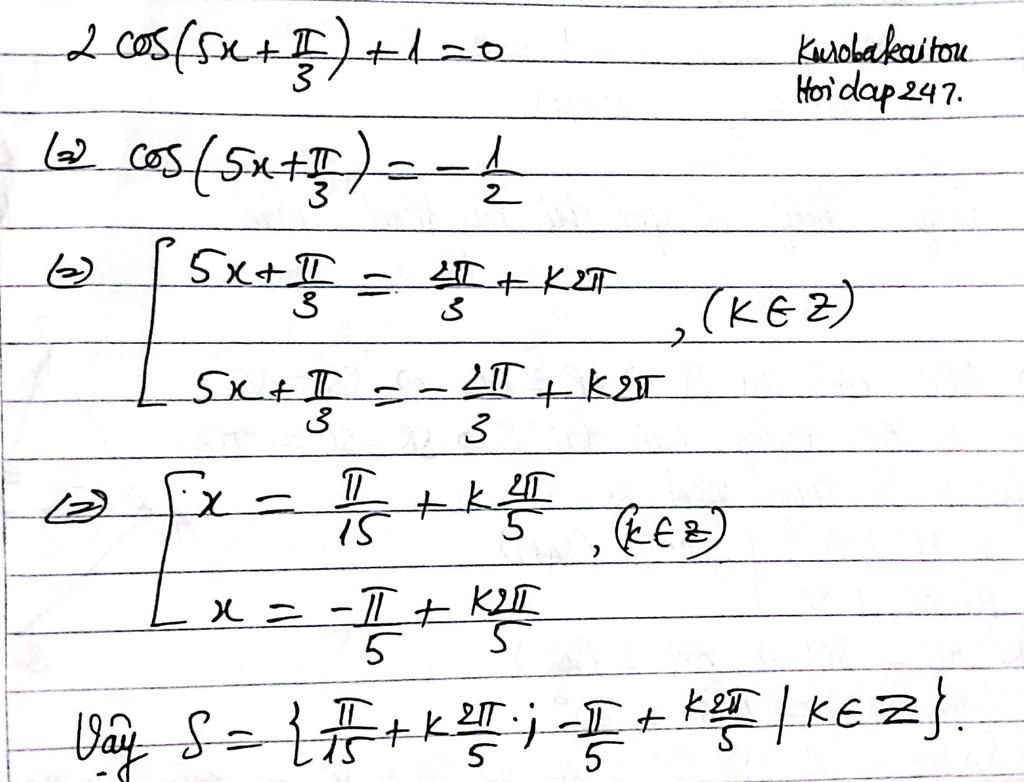 2 cos(5x + π/3) + 1 = 0
Kurobakaitou
Hoidap247.
(=) cos(5x + π/3) = - 1/2
(=) [ 5x + π/3 = 2π/3 + K2π
, (K ∈ Z)
5x + π/3 = - 2π/3 + K2π
(=) [ x = π/15 + k 2π/5
, (k ∈ Z)
x = - π/5 + K2π/5
Vậy S = { π/15 + K 2π/5 ; - π/5 + K2π/5 | K ∈ Z }.